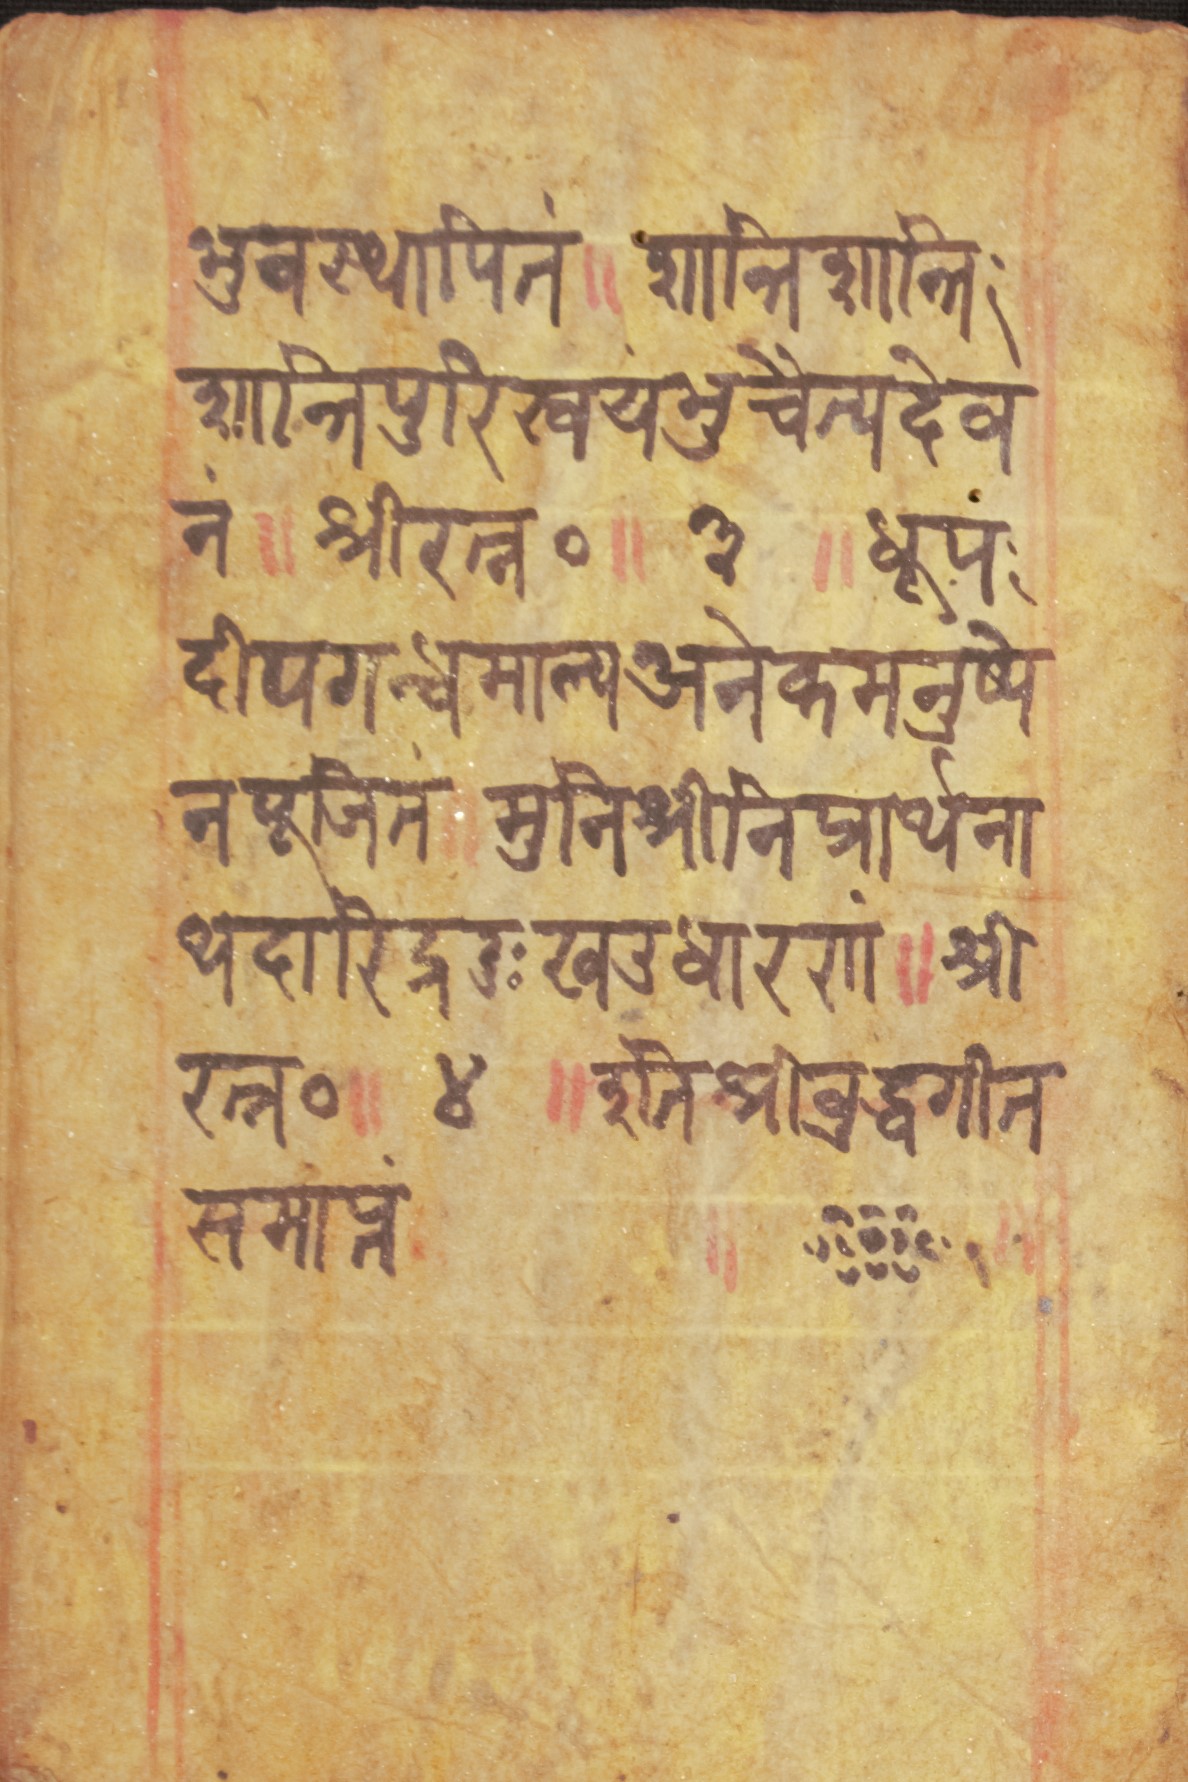 भुवस्थापितं ॥ शान्तिशान्तिः
शान्तिपुरिस्वयंभुचैत्यदेव
तं ॥ श्रीरत्न० ॥ ३ ॥ धूपंः
दीपगन्धमाल्यअनेकमनुष्ये
नपूजितं ॥ मुनिश्रीनिप्रार्थना
थदारिद्रदुःखउधारणं ॥ श्री
रत्न० ॥ ४ ॥ इतिश्रीवुद्धगीत
समाप्तं ॥ ॥